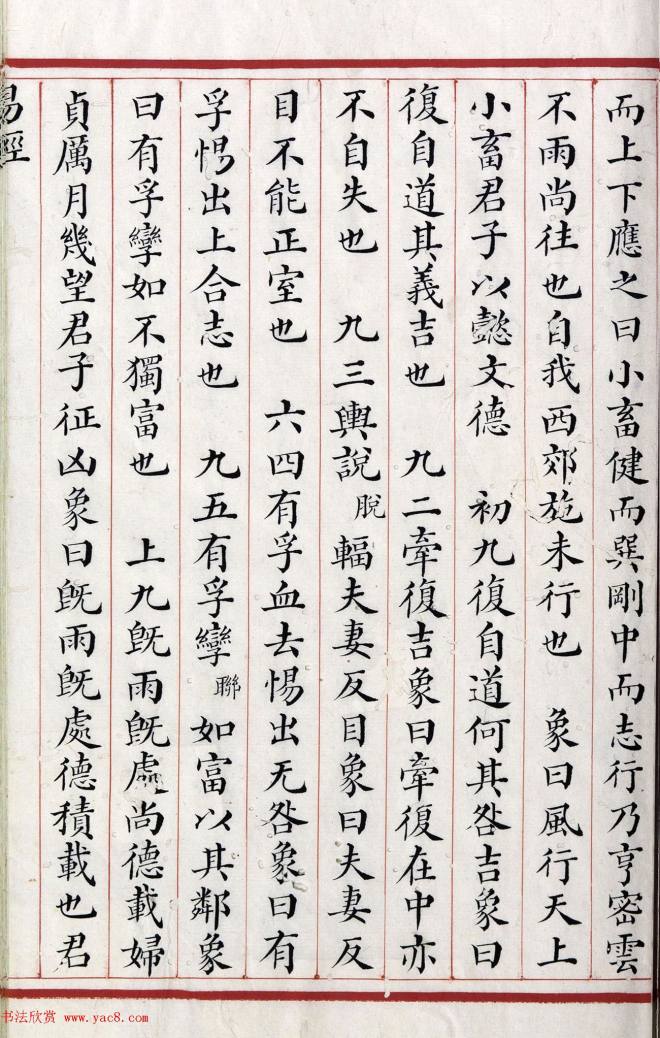 而上下應之曰小畜健而巽剛中而志行乃亨密雲
不雨尚往也自我西郊施未行也 象曰風行天上
小畜君子以懿文德 初九復自道何其咎吉象曰
復自道其義吉也 九二牽復吉象曰牽復在中亦
不自失也 九三輿說脫輻夫妻反目象曰夫妻反
目不能正室也 六四有孚血去惕出无咎象曰有
孚惕出上合志也 九五有孚孿聯如富以其鄰象
曰有孚孿如不獨富也 上九既雨既處尚德載婦
貞厲月幾望君子征凶象曰既雨既處德積載也君
易經
书法欣赏 www.yac8.com